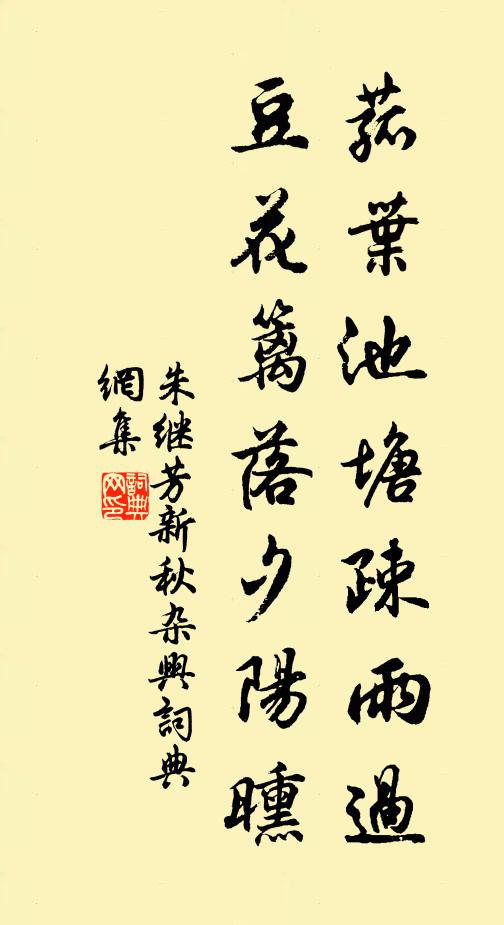 菰葉池塘疎雨過
豆花籬落夕陽曛
朱继芳新秋杂興詞典
網集
詞典
网印